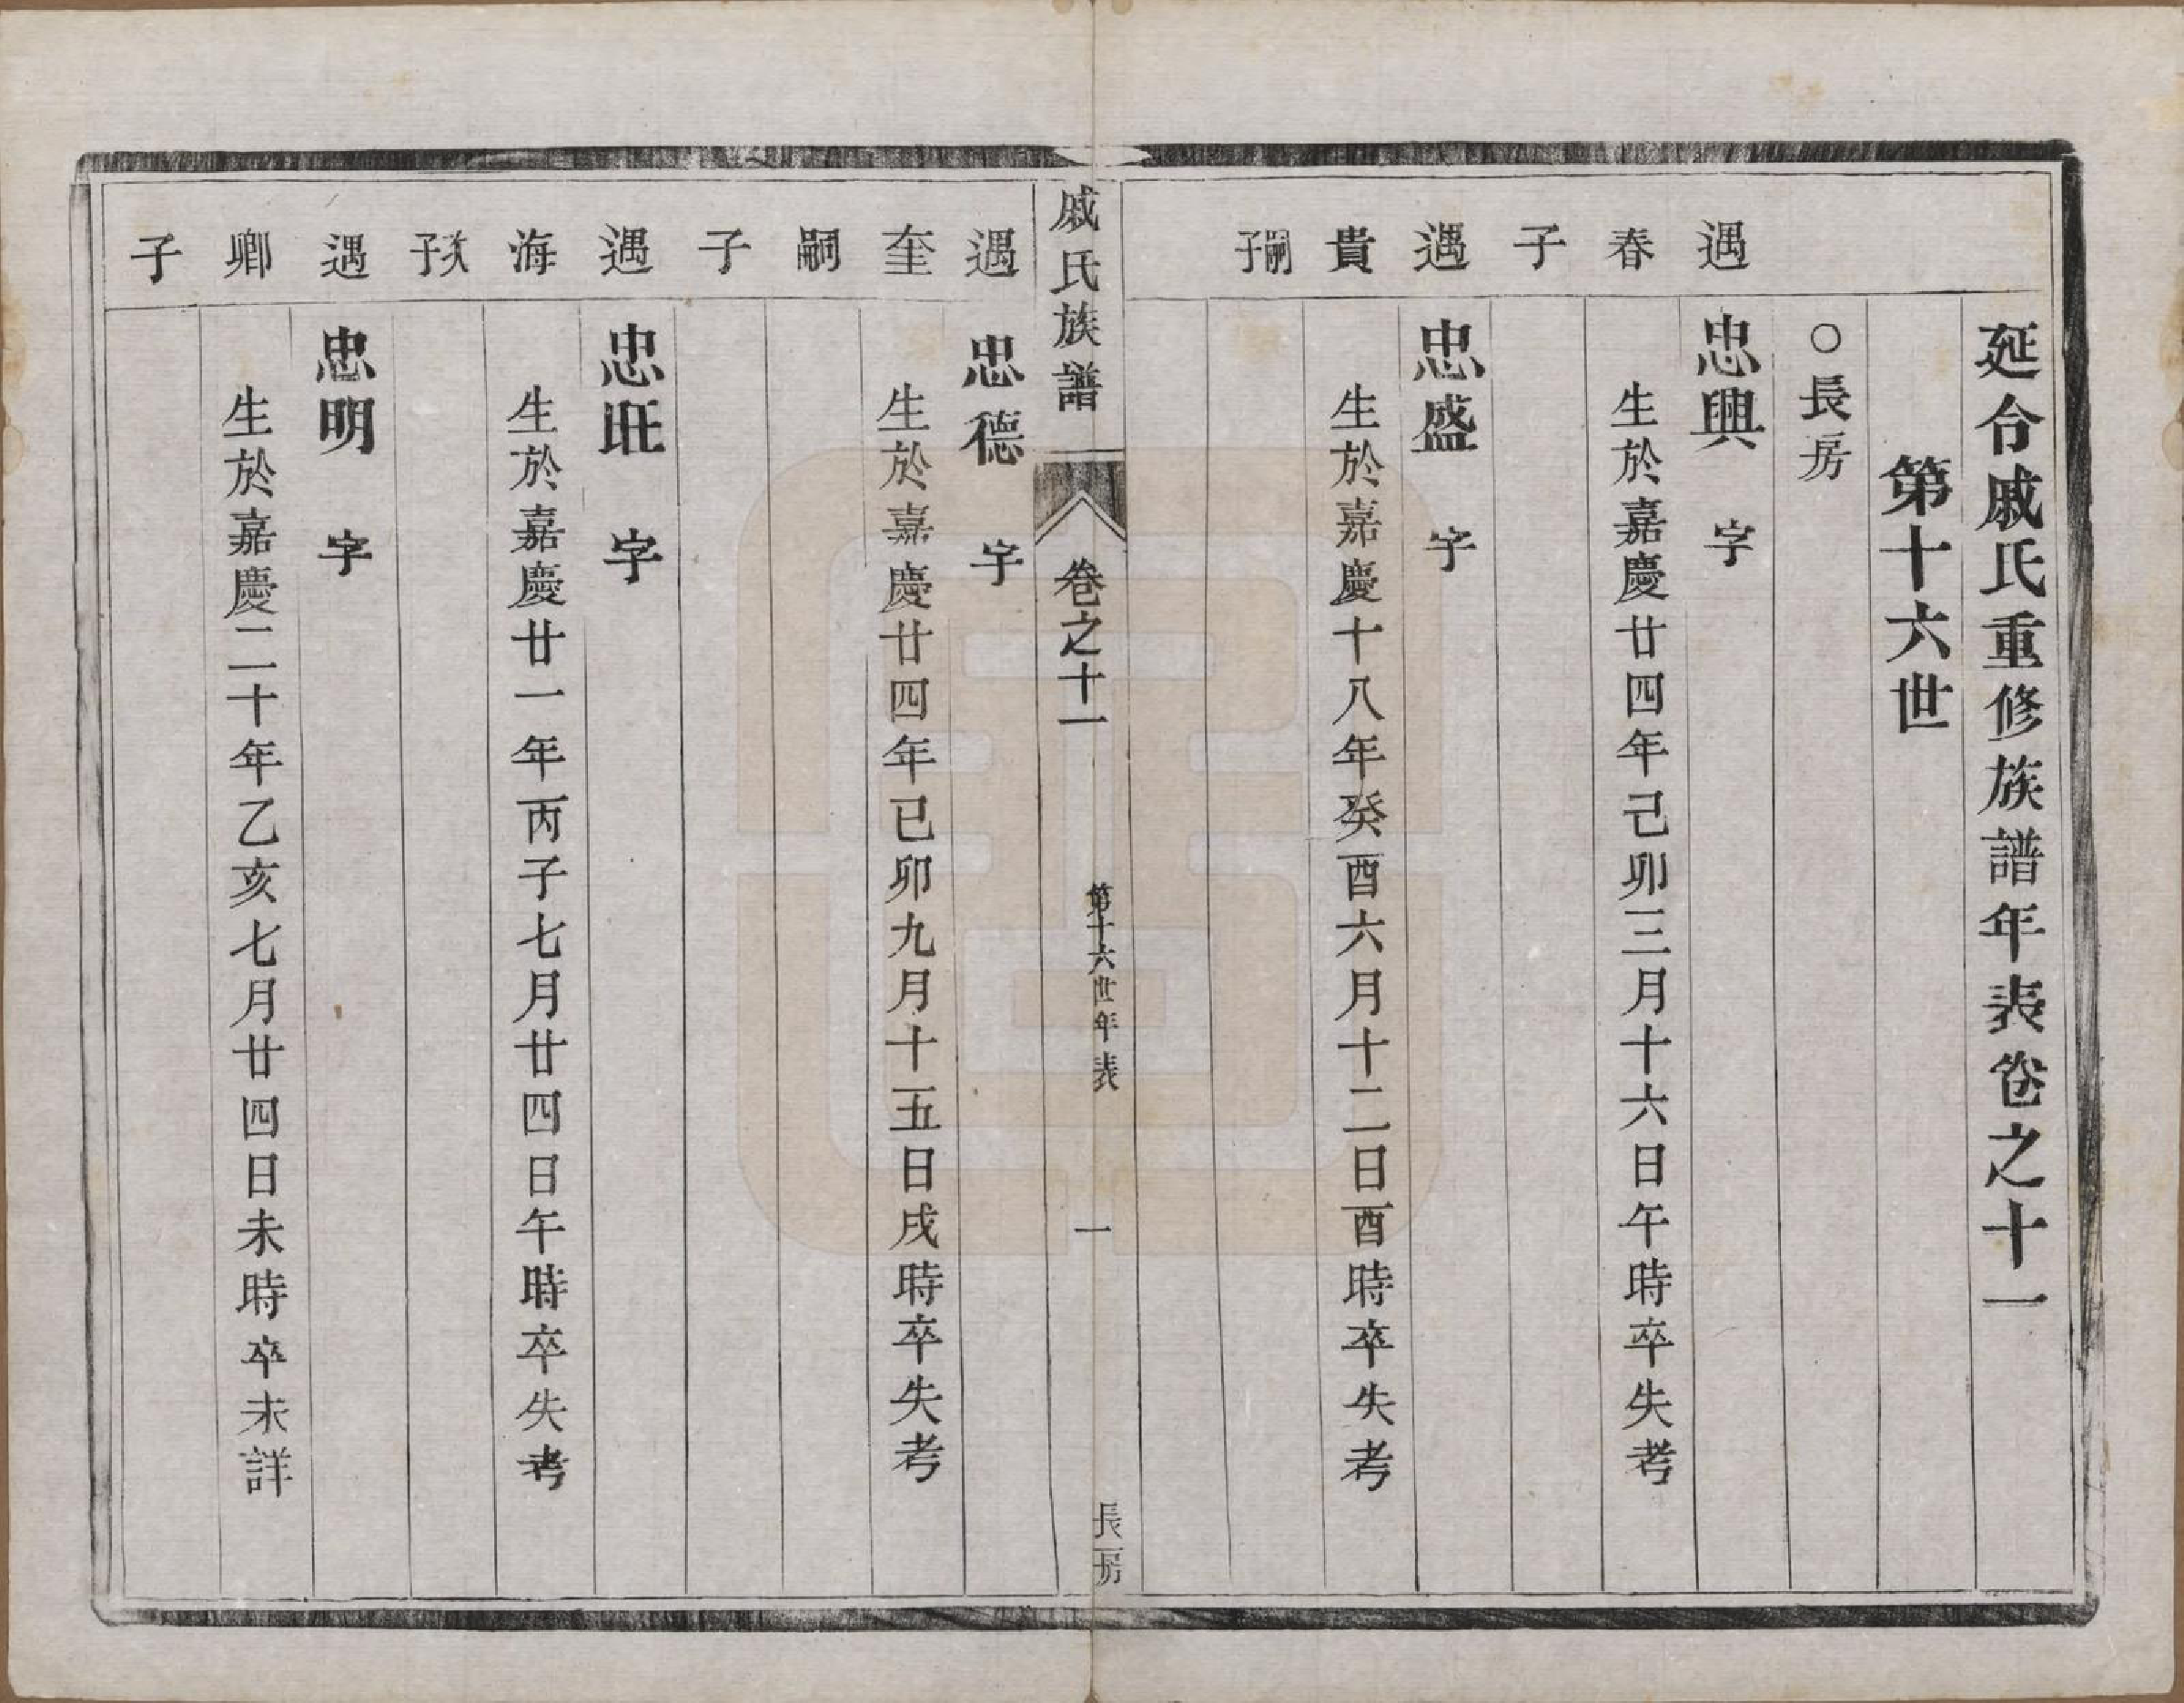 延令戚氏重修族譜年表卷之十一
第十六世
○長房
遇春子
忠興 字
生於嘉慶廿四年己卯三月十六日午時卒失考
遇貴嗣子
忠盛 字
生於嘉慶十八年癸酉六月十二日酉時卒失考
戚氏族譜 卷之十一 第十六世年表 一 長房
遇奎嗣子
忠德 字
生於嘉慶廿四年已卯九月十五日戌時卒失考
遇海次子
忠旺 字
生於嘉慶廿一年丙子七月廿四日午時卒失考
遇卿子
忠明 字
生於嘉慶二十年乙亥七月廿四日未時卒未詳